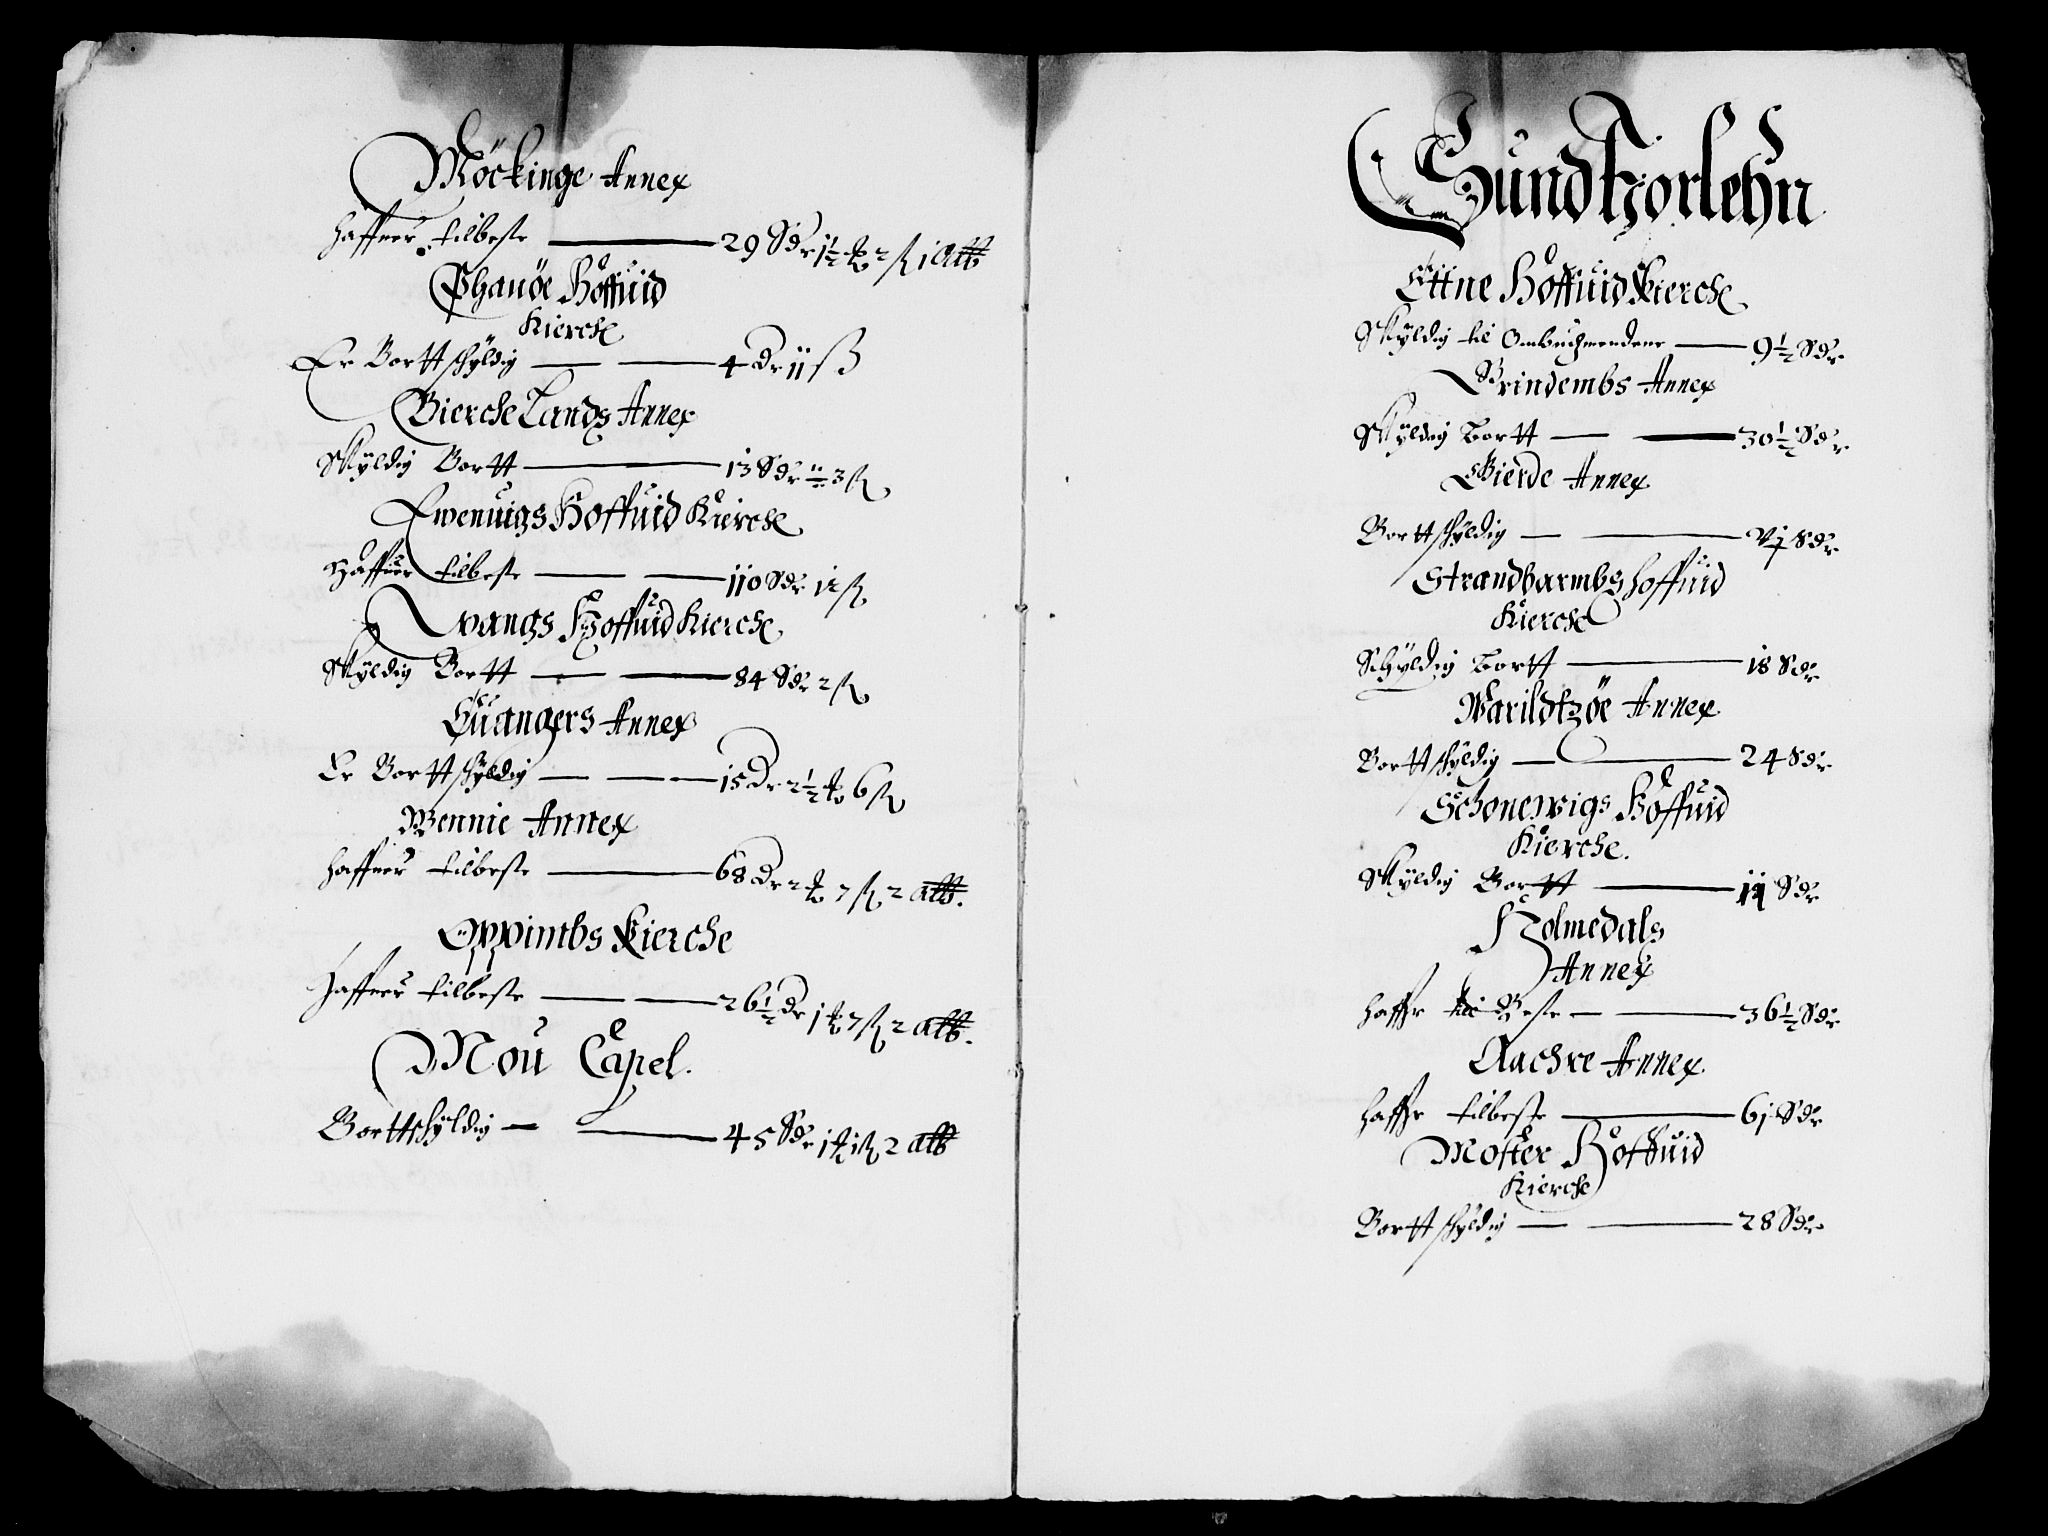 Möckinge Annex
haffuer tilbeste 29 Sdr 1½ ß 1 alb
Phanöe Hoffuid
Kierche
Er Bortt schyldig 4 Dr 11 ß
Bierche Lands Annex
Skyldig Bortt 13 Sdr 3 ß
Ewenuigs Hoffuid Kierche
Haffuer tilbeste 110 Sdr 12 ß
Wangs Hoffuid Kierche
Skyldig Bortt 84 Sdr 2 ß
Euangers Annex
Er Bortt schyldig 15 Dr 2½ 6 ß
Wennie Annex
haffuer tilbeste 68 Dr 2 7 ß 2 alb.
Oppimbs Kierche
Haffuer tilbeste 26½ Dr 1 7 ß 2 alb.
Mou Capel.
Bortt schyldig 45 Sdr 1 1 ß 2 alb
Sundhorlehn
Ettne Hoffuid Kierche
Skyldig til Ombuchmendene 9½ Sdr
Grindembs Annex
Skyldig Bortt 30½ Sdr
Gierde Annex
Bortt schyldig Vj Sdr
Strandbarmbs hoffuid
Kierche
Schyldig Bortt 18 Sdr
Warildtzöe Annex
Bortt schyldig 24 Sdr
Schonewigs Hoffuid
Kierche.
Skyldig Bortt 11 Sdr
Holmedals
Annex
haffr till Beste 36½ Sdr
Aachre Annex
haffr tilbeste 61 Sdr
Moster Hoffuid
Kierche
Bortt schyldig 28 Sdr